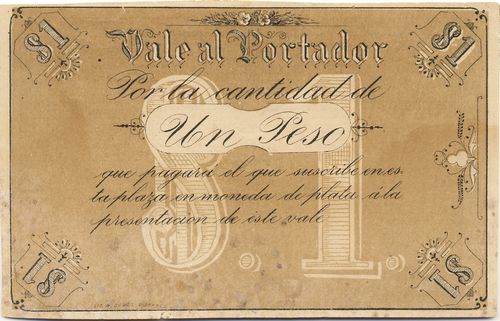 $1 Vale al Portador $1
Por la cantidad de
Un Peso
$1.
que pagará el que suscribe en es-
ta plaza en moneda de plata á la
presentacion de éste vale
$1 $1